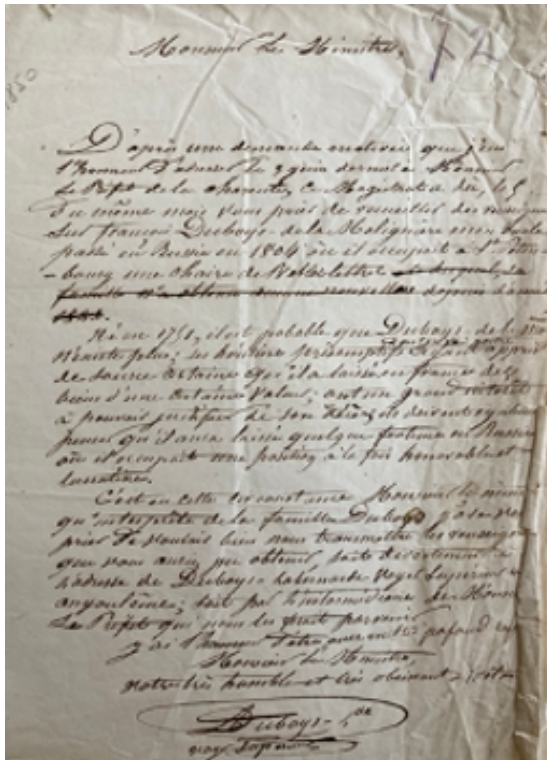 72
1850
Monsieur Le Ministre,
D'après une demande motivée que j'eus
l'honneur d'adresser le 3 juin dernier à Monsieur
Le Préfet de la Charente, ce Magistrat a dû, le 5
du même mois vous prier de recueillir des renseign
sur françois Duboys de la
passé en Russie en 1804 où il occupait à St Péters
-bourg une chaire de Belles lettres
famille n'a obtenu aucune nouvelle depuis
Né en 1751, il est probable que Duboys de la
n'existe plus; ses héritiers présomptifs ayant appris
de source certaine qu'il a laissé en france des
biens d'une certaine valeur, ont un grand intérêt
à pouvoir justifier de son décès, ils doivent également
penser qu'il aura laissé quelque fortune en Russie
où il occupait une position à la fois honorable et
lucrative.
C'est en cette circonstance Monsieur le minis
qu'interprète de la famille Duboys j'ose vous
prier de vouloir bien nous transmettre les renseign
que vous aurez pu obtenir, soit directement à
l'adresse de Duboys
angoulême; soit par l'intermédiaire de Monsieur
Le Préfet qui nous les ferait parvenir
J'ai l'honneur d'être avec un très profond resp
Monsieur Le Ministre,
votre très humble et très obéissant
Duboys